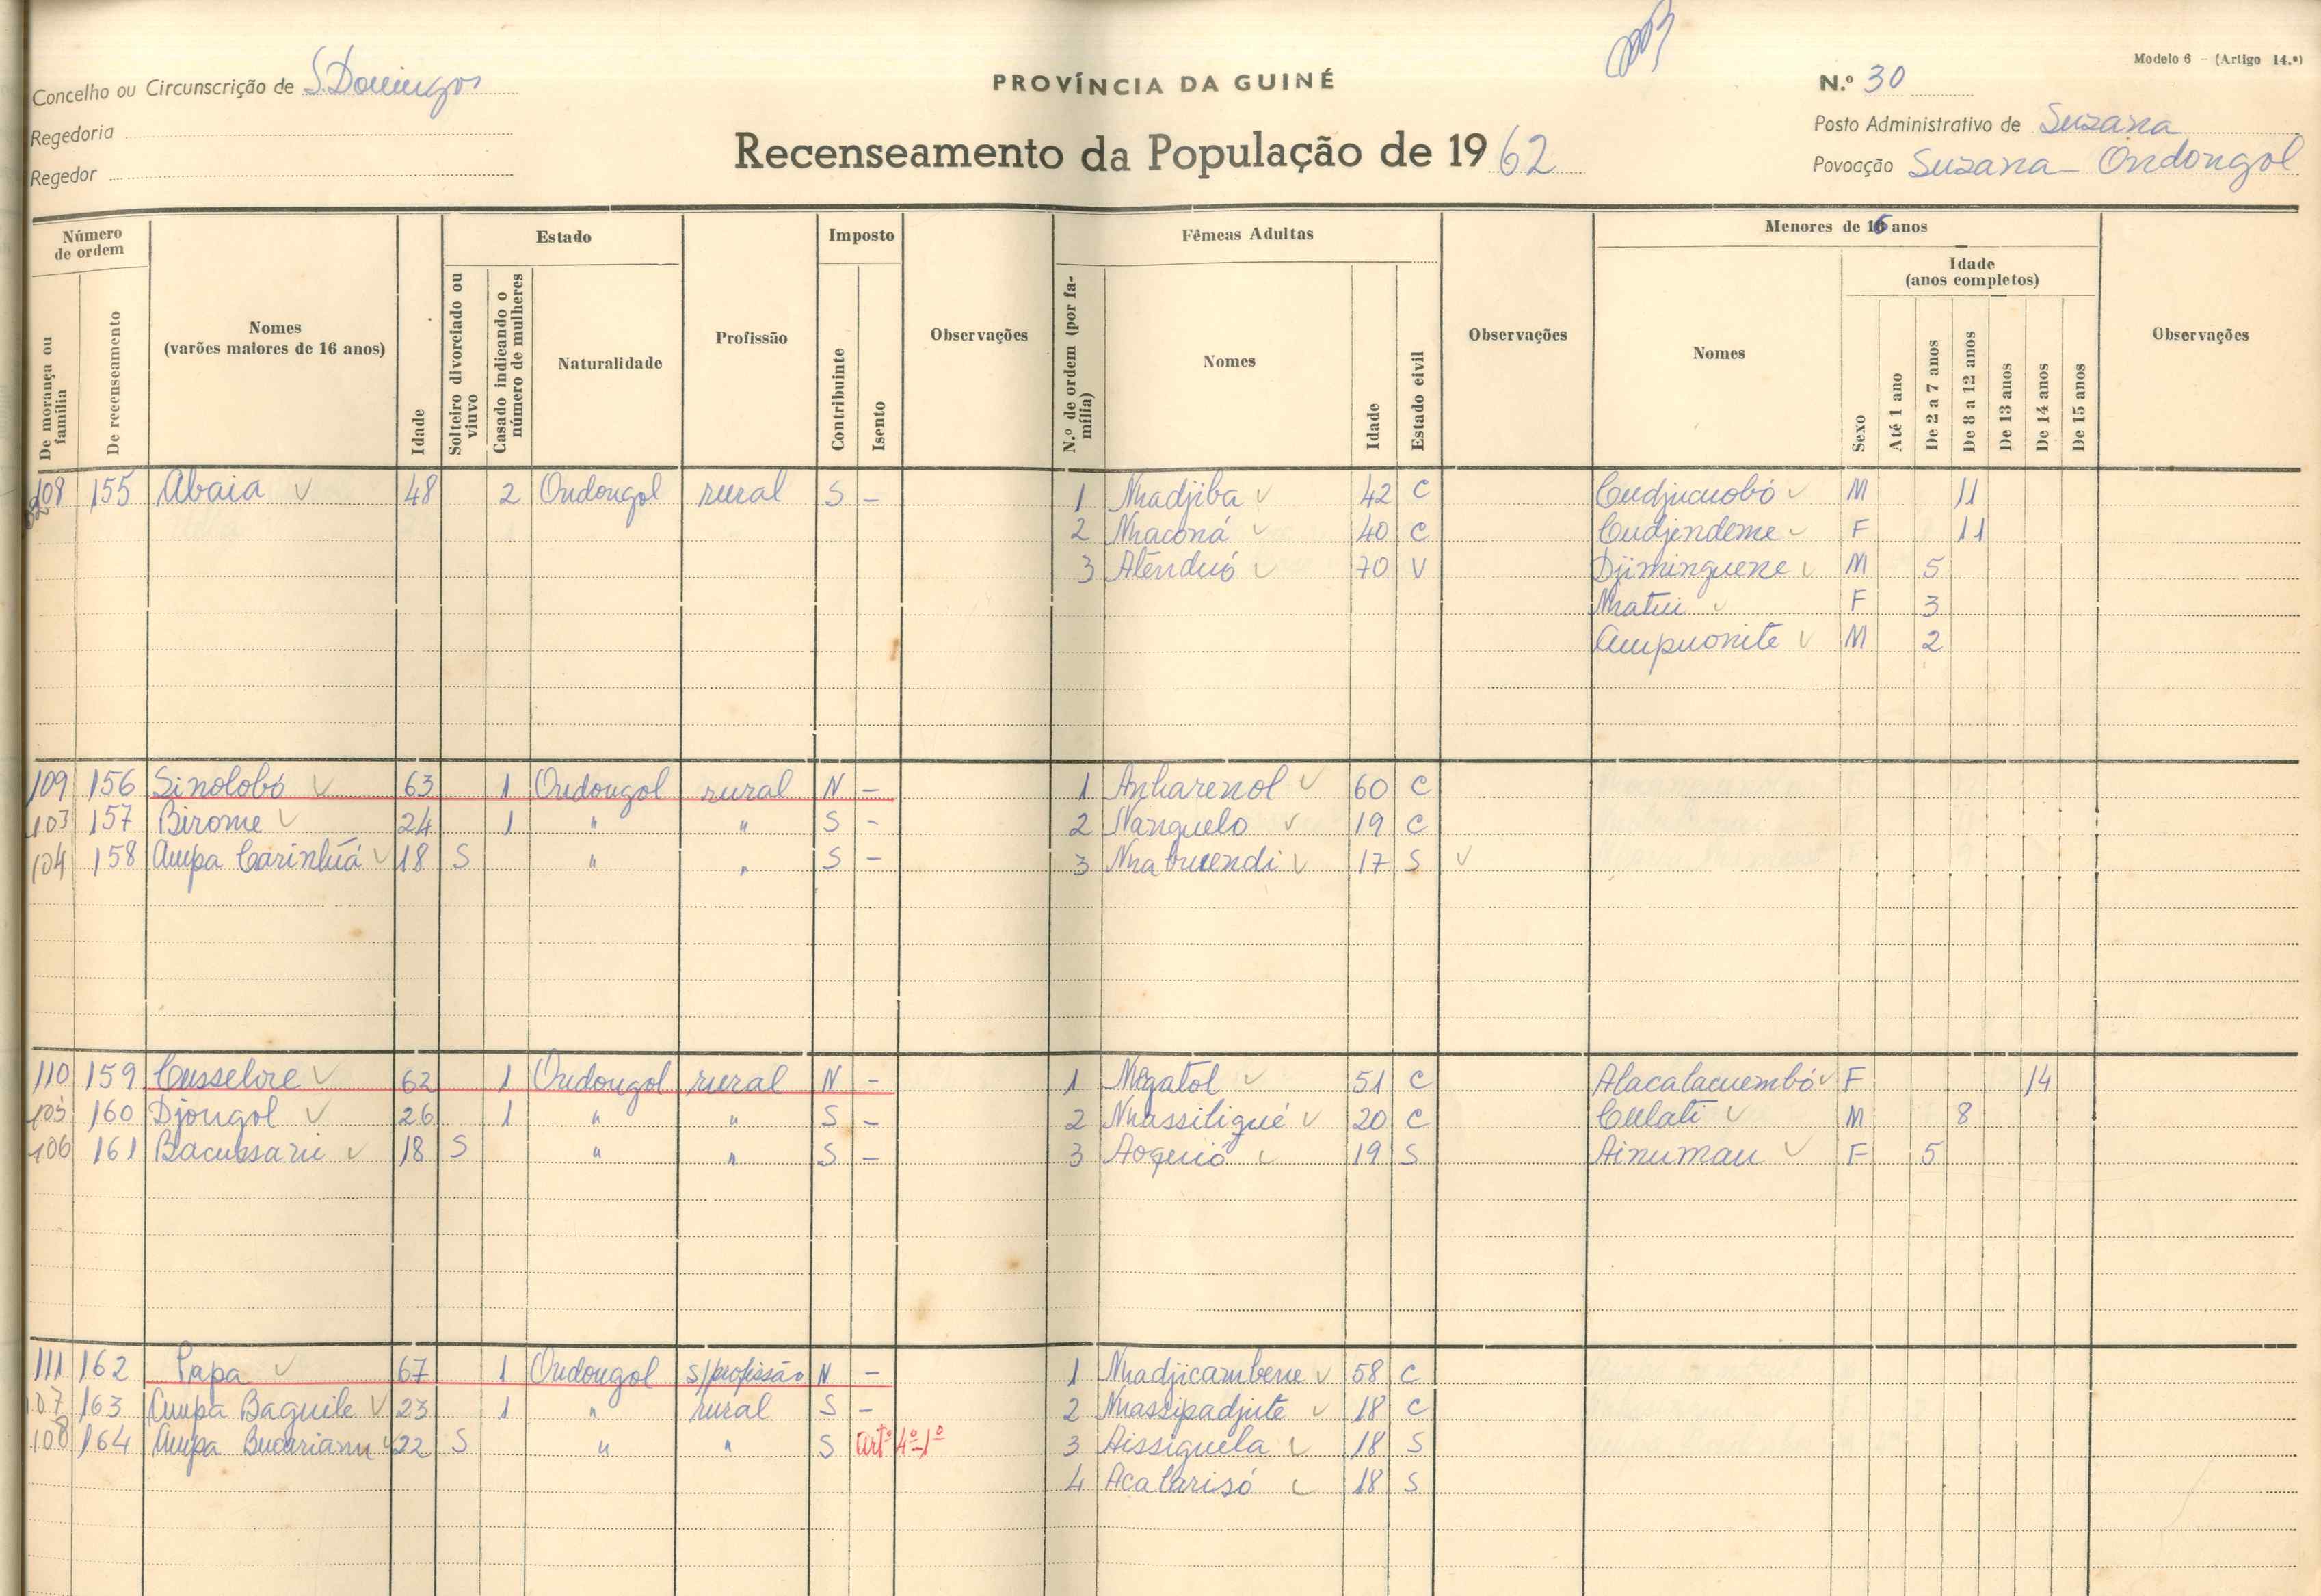 Modelo 6 - (Artigo 14.º)
Concelho ou Circunscrição de S. Domingos
PROVÍNCIA DA GUINÉ
N.º 30
Regedoria
Posto Administrativo de Suzana
Regedor
Recenseamento da População de 1962
Povoação Suzana - Ondongol
Número de ordem
De morança ou família
De recenseamento
Nomes
(varões maiores de 16 anos)
Idade
Estado
Solteiro divorciado ou viuvo
Casado indicando o número de mulheres
Naturalidade
Profissão
Imposto
Contribuinte
Isento
Observações
Fêmeas Adultas
N.º de ordem (por família)
Nomes
Idade
Estado civil
Observações
Menores de 16 anos
Nomes
Sexo
Idade
(anos completos)
Até 1 ano
De 2 a 7 anos
De 8 a 12 anos
De 13 anos
De 14 anos
De 15 anos
Observações
108 155 Abaia 48 2 Ondongol rural S - 1 Nhadjiba 42 C Cudjucuobó M 11
2 Nhaconá 40 C Cudjendeme F 11
3 Atenduó 70 V Djiminguene M 5
Nhatui F 3
Ampuonite M 2
109 156 Sinolobó 63 1 Ondongol rural N - 1 Anharenol 60 C
103 157 Birome 24 1 " " S - 2 Nanguelo 19 C
104 158 Ampa Carinhuá 18 S " " S - 3 Nhabuendi 17 S
110 159 Cusselire 62 1 Ondongol rural N - 1 Megatol 51 C Alacalacuembó F 14
105 160 Djongol 26 1 " " S - 2 Nhassiligué 20 C Culati M 8
106 161 Bacussari 18 S " " S - 3 Aoguió 19 S Ainumau F 5
111 162 Papa 67 1 Ondongol s/profissão N - 1 Nhadjicambene 58 C
107 163 Ampa Baguile 23 1 " rural S - 2 Nhassipadjute 18 C
108 164 Ampa Bucariam 22 S " " S artº 4º-1º 3 Aissiguela 18 S
4 Acalarisó 18 S